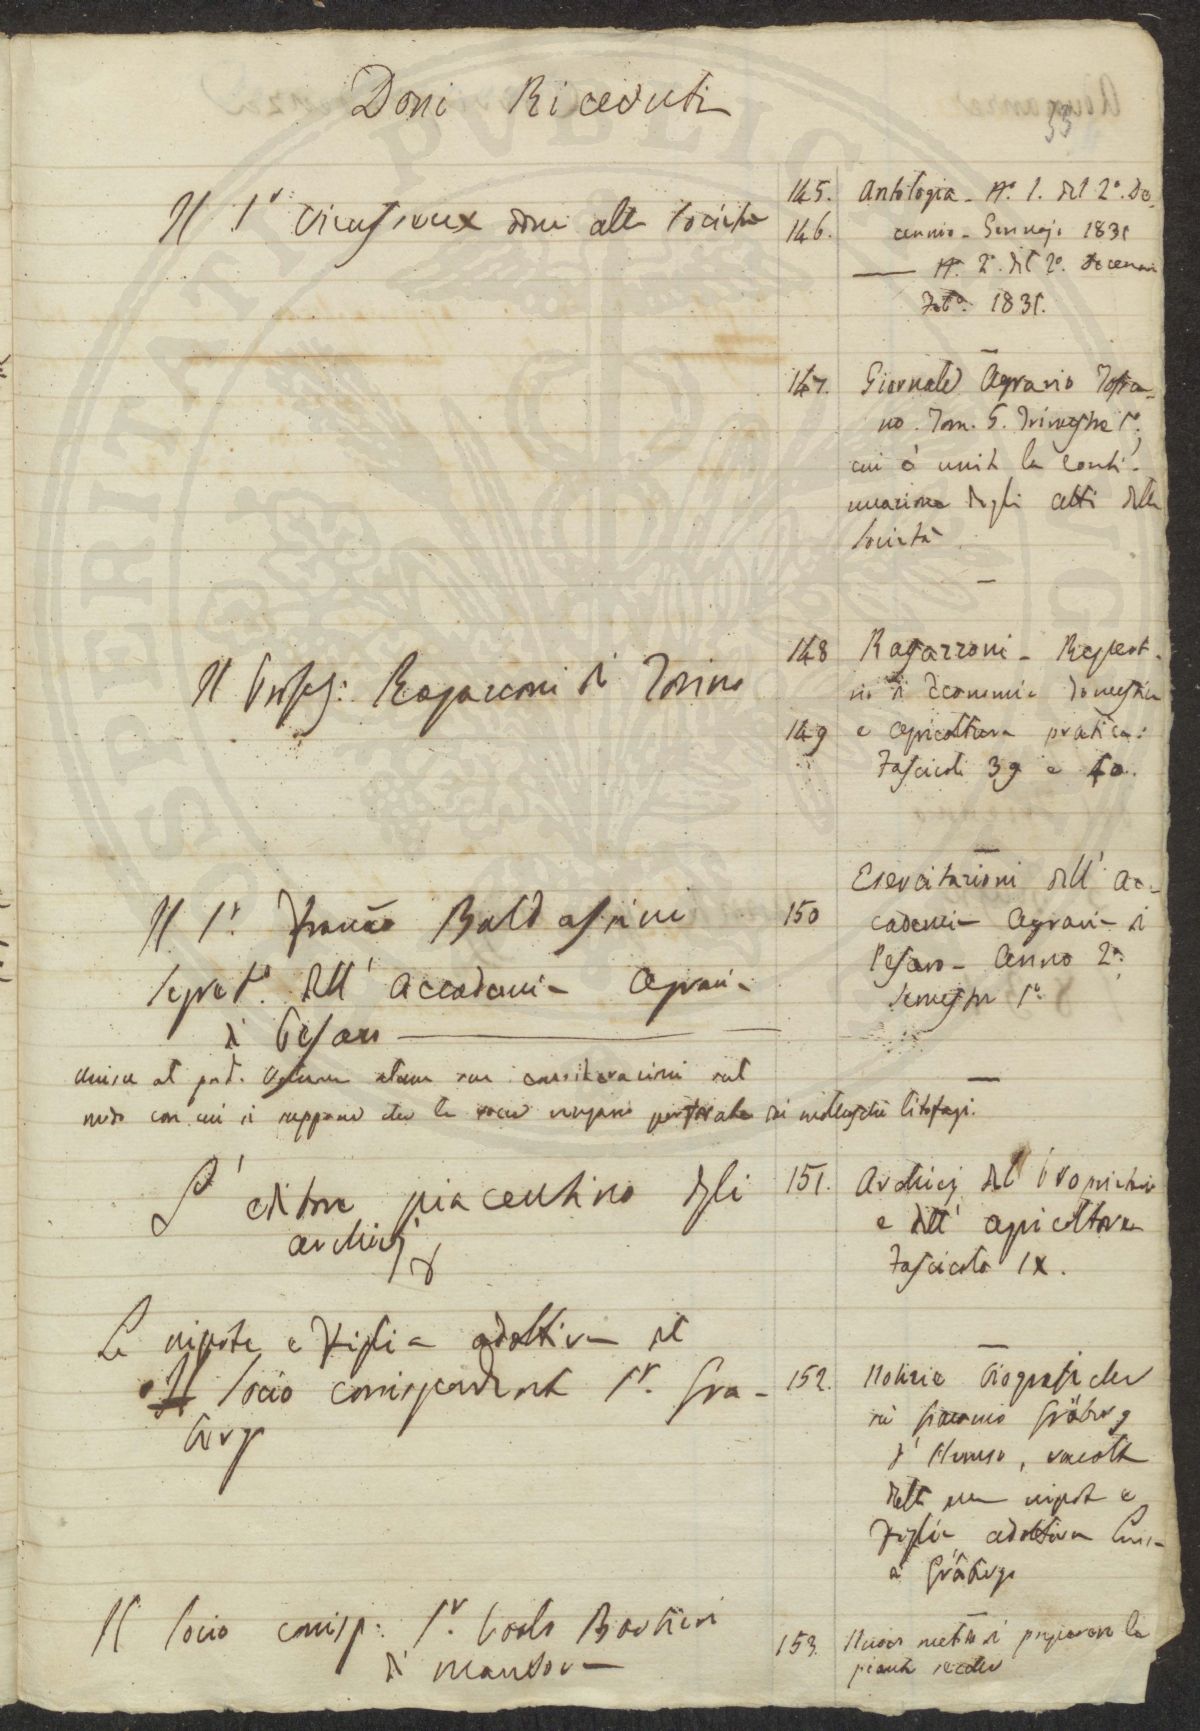 Doni Ricevuti
33
Il Sr Vieusseux dona alla Società
145. Antologia - No. 1. del 2o. De-
146. cennio - Gennajo 1831
—— No. 2o. del 2o. Decennio
Febo. 1831.
147. Giornale Agrario Tosca-
no. Tom. 5. Trimestre 1o.
cui è unita la conti-
nuazione degli atti della
Società
Il Profes: Ragazzoni di Torino
148 Ragazzoni - Repert-
rio di Economia domestica
149 e agricoltura pratica:
Fascicoli 39 e 40.
Il Sr. Franco Baldassini
Segreto. dell' Accademia Agraria
di Pesaro
150 Esercitazioni dell' Ac-
cademia Agraria di
Pesaro - Anno 2o.
Semestre 1o.
unisce al pred. Volume alcune sue considerazioni sul
modo con cui si suppone che le rocce vengano perforate dai molluschi litofagi.
L' editore piacentino degli
archivj
151. Archivj del Proprietario
e dell' agricoltore
Fascicolo IX.
La nipote e figlia adottiva del
Socio corrispondente Sr. Gra-
berg
152. Notizie biografiche
di Giacomo Gråberg
d' Hemso, raccolte
dalla sua nipote e
figlia adottiva Luis-
a Gråberg
Il Socio corrisp: Sr. Paolo Barbieri
di Mantova
153. Nuovo metodo di preparare le
piante secche